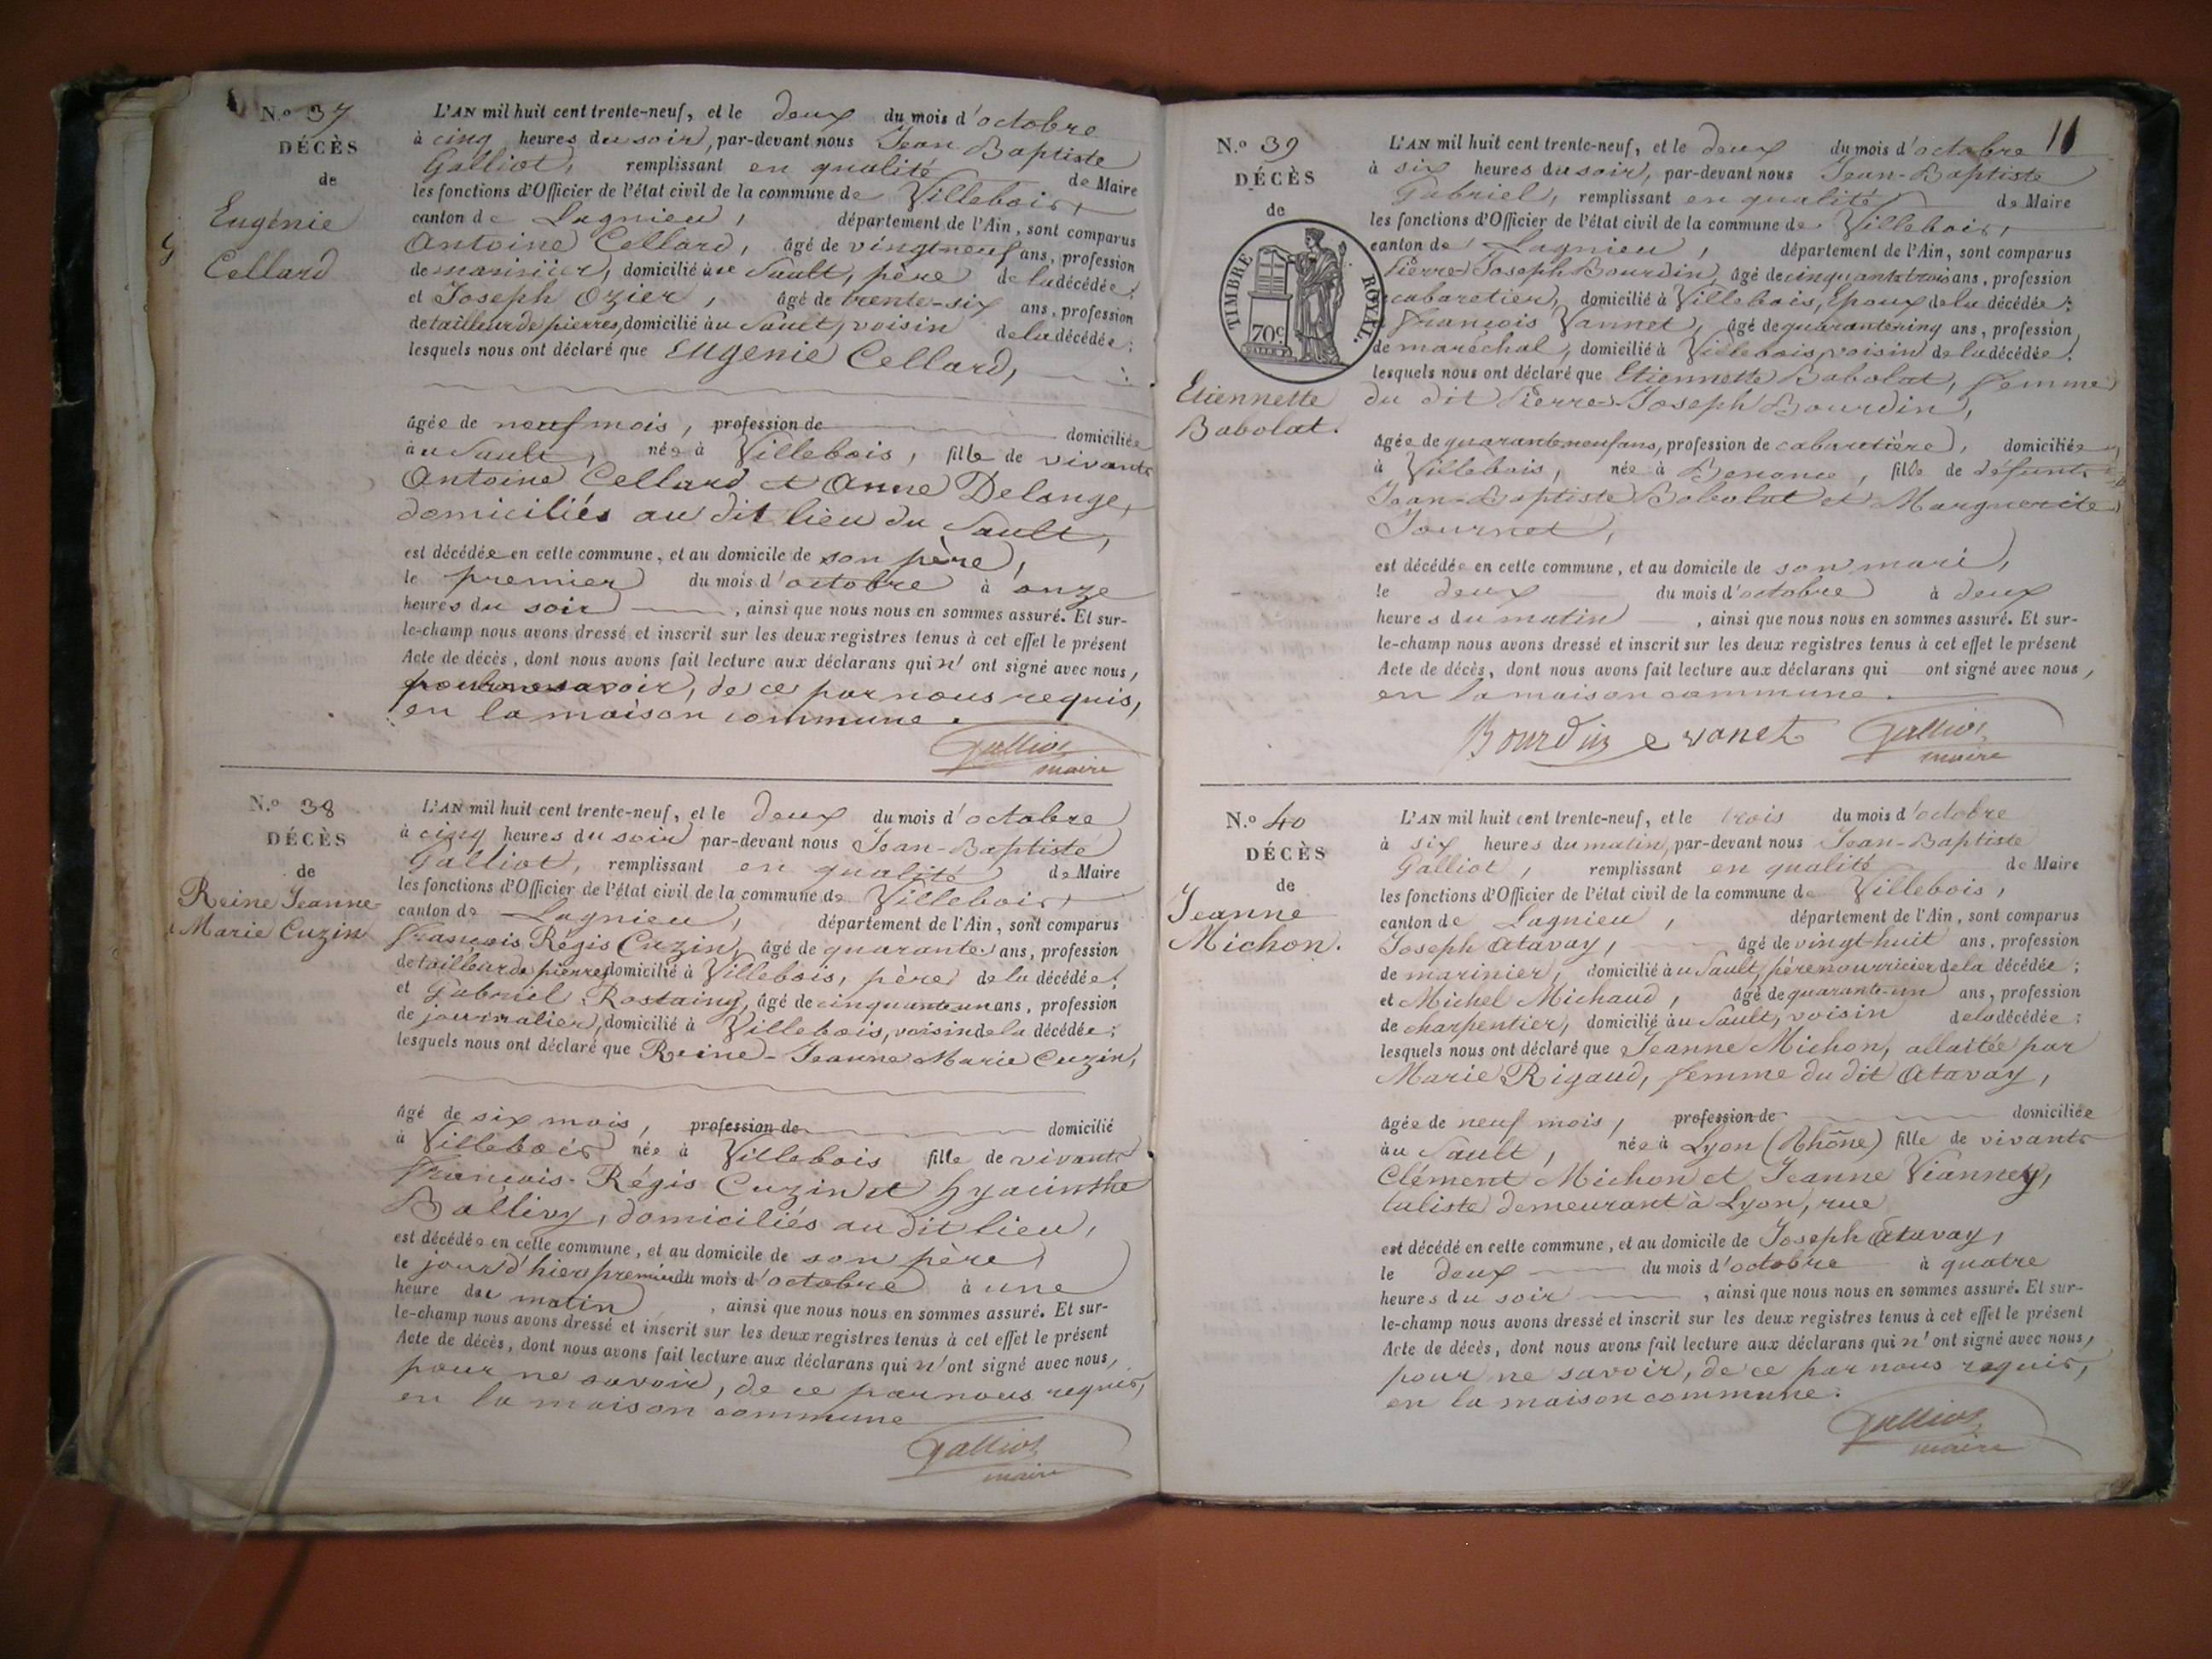 N.° 37
DÉCÈS
de
Eugénie
Cellard
L'AN mil huit cent trente-neuf, et le deux du mois d'octobre
à cinq heures du soir, par-devant nous Jean Baptiste
Galliot, remplissant en qualité de Maire
les fonctions d'Officier de l'état civil de la commune de Villebois,
canton de Lagnieu, département de l'Ain, sont comparus
Antoine Cellard, âgé de vingt neuf ans, profession
de marinier, domicilié au Sault, père de la décédée;
et Joseph Ozier, âgé de trente-six ans, profession
de tailleur de pierres, domicilié au Sault, voisin de la décédée;
lesquels nous ont déclaré que Eugenie Cellard,
âgée de neuf mois, profession de domiciliée
au Sault, née à Villebois, fille de vivants
Antoine Cellard et Anne Delange,
domiciliés au dit lieu du Sault,
est décédée en cette commune, et au domicile de son père,
le premier du mois d'octobre à onze
heures du soir, ainsi que nous nous en sommes assuré. Et sur-
le-champ nous avons dressé et inscrit sur les deux registres tenus à cet effet le présent
Acte de décès, dont nous avons fait lecture aux déclarans qui n'ont signé avec nous,
pour ne savoir, de ce par nous requis,
en la maison commune.
Galliot
maire
N.° 38
DÉCÈS
de
Reine Jeanne
Marie Cuzin
L'AN mil huit cent trente-neuf, et le deux du mois d'octobre
à cinq heures du soir par-devant nous Jean-Baptiste
Galliot, remplissant en qualité de Maire
les fonctions d'Officier de l'état civil de la commune de Villebois,
canton de Lagnieu, département de l'Ain, sont comparus
François Régis Cuzin, âgé de quarante ans, profession
de tailleur de pierres domicilié à Villebois, père de la décédée;
et Gabriel Rostaing, âgé de cinquante un ans, profession
de journalier, domicilié à Villebois, voisin de la décédée;
lesquels nous ont déclaré que Reine-Jeanne Marie Cuzin,
âgé de six mois, profession de domicilié
à Villebois née à Villebois fille de vivants
François-Régis Cuzin et hyacinthe
Ballivy, domiciliés au dit lieu,
est décédée en cette commune, et au domicile de son père,
le jour d'hier premier du mois d'octobre à une
heure du matin, ainsi que nous nous en sommes assuré. Et sur-
le-champ nous avons dressé et inscrit sur les deux registres tenus à cet effet le présent
Acte de décès, dont nous avons fait lecture aux déclarans qui n'ont signé avec nous,
pour ne savoir, de ce par nous requis,
en la maison commune
Galliot
maire
11
N.° 39
DÉCÈS
de
TIMBRE ROYAL.
70c
Etiennette
Babolat.
L'AN mil huit cent trente-neuf, et le deux du mois d'octobre
à six heures du soir, par-devant nous Jean-Baptiste
Gabriel, remplissant en qualité de Maire
les fonctions d'Officier de l'état civil de la commune de Villebois,
canton de Lagnieu, département de l'Ain, sont comparus
Pierre Joseph Bourdin, âgé de cinquante trois ans, profession
cabaretier, domicilié à Villebois, Epoux de la décédée;
François Vannet, âgé de quarante cinq ans, profession
de maréchal, domicilié à Villebois, voisin de la décédée;
lesquels nous ont déclaré que Etiennette Babolat, femme
du dit Pierre-Joseph Bourdin,
âgée de quarante neuf ans, profession de cabaretière, domiciliée
à Villebois, née à Benonce, fille de défunts
Jean-Baptiste Babolat et Marguerite
Journet,
est décédée en cette commune, et au domicile de son mari,
le deux du mois d'octobre à deux
heures du matin, ainsi que nous nous en sommes assuré. Et sur-
le-champ nous avons dressé et inscrit sur les deux registres tenus à cet effet le présent
Acte de décès, dont nous avons fait lecture aux déclarans qui ont signé avec nous,
en la maison commune.
Bourdin vanet Galliot
maire
N.° 40
DÉCÈS
de
Jeanne
Michon.
L'AN mil huit cent trente-neuf, et le trois du mois d'octobre
à six heures du matin, par-devant nous Jean-Baptiste
Galliot, remplissant en qualité de Maire
les fonctions d'Officier de l'état civil de la commune de Villebois,
canton de Lagnieu, département de l'Ain, sont comparus
Joseph Atavay, âgé de vingt-huit ans, profession
de marinier, domicilié au Sault, père nourricier de la décédée;
et Michel Michaud, âgé de quarante-un ans, profession
de charpentier, domicilié au Sault, voisin de la décédée;
lesquels nous ont déclaré que Jeanne Michon, allaitée par
Marie Rigaud, femme du dit Atavay,
âgée de neuf mois, profession de domiciliée
au Sault, née à Lyon (Rhône) fille de vivants
Clément Michon et Jeanne Vianney,
tuliste demeurant à Lyon, rue
est décédé en cette commune, et au domicile de Joseph Atavay,
le deux du mois d'octobre à quatre
heures du soir, ainsi que nous nous en sommes assuré. Et sur-
le-champ nous avons dressé et inscrit sur les deux registres tenus à cet effet le présent
Acte de décès, dont nous avons fait lecture aux déclarans qui n'ont signé avec nous,
pour ne savoir, de ce par nous requis,
en la maison commune.
Galliot
maire